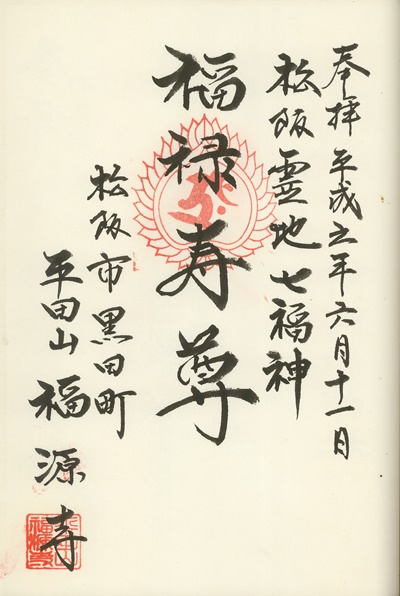 奉拝 平成五年六月十一日
松阪霊地七福神
福禄寿尊
松阪市黒田町
平田山 福源寺